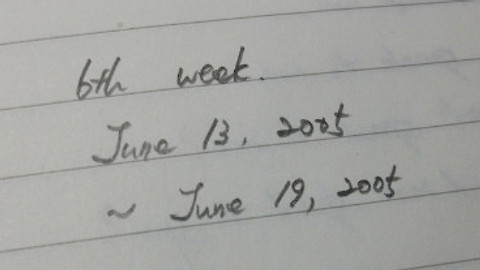 6th week.
June 13, 2005
~ June 19, 2005